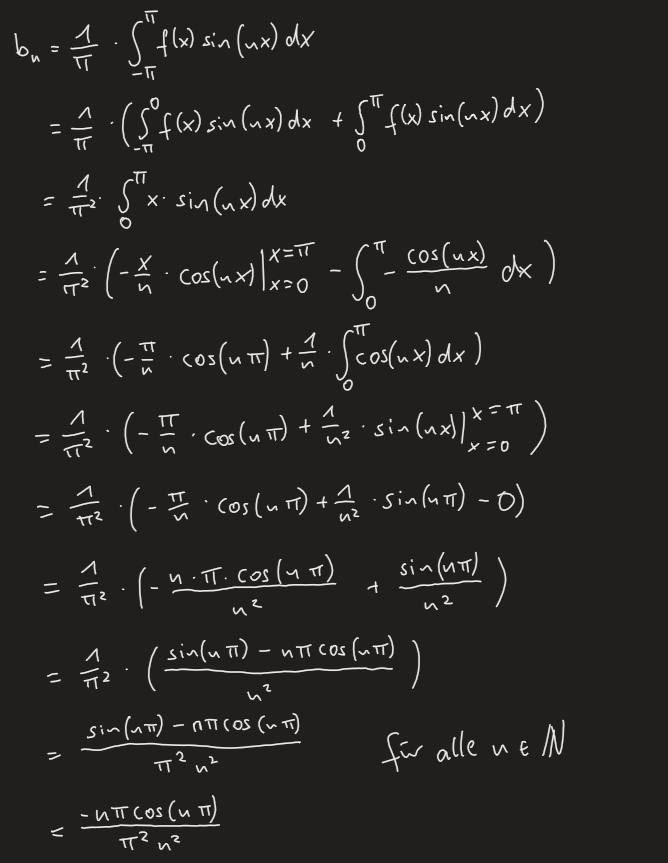 bₙ = 1/π · ∫_{-π}^{π} f(x) sin(nx) dx
= 1/π · (∫_{-π}^{0} f(x) sin(nx) dx + ∫_{0}^{π} f(x) sin(nx) dx)
= 1/π² · ∫_{0}^{π} x · sin(nx) dx
= 1/π² · (-x/n · cos(nx) |_{x=0}^{x=π} - ∫_{0}^{π} - cos(nx)/n dx)
= 1/π² · (-π/n · cos(nπ) + 1/n · ∫_{0}^{π} cos(nx) dx)
= 1/π² · (-π/n · cos(nπ) + 1/n² · sin(nx) |_{x=0}^{x=π})
= 1/π² · (-π/n · cos(nπ) + 1/n² · sin(nπ) - 0)
= 1/π² · (-(n·π·cos(nπ))/n² + sin(nπ)/n²)
= 1/π² · ((sin(nπ) - nπ cos(nπ))/n²)
= (sin(nπ) - nπ cos(nπ))/(π² n²) für alle n ∈ ℕ
= (-nπ cos(nπ))/(π² n²)